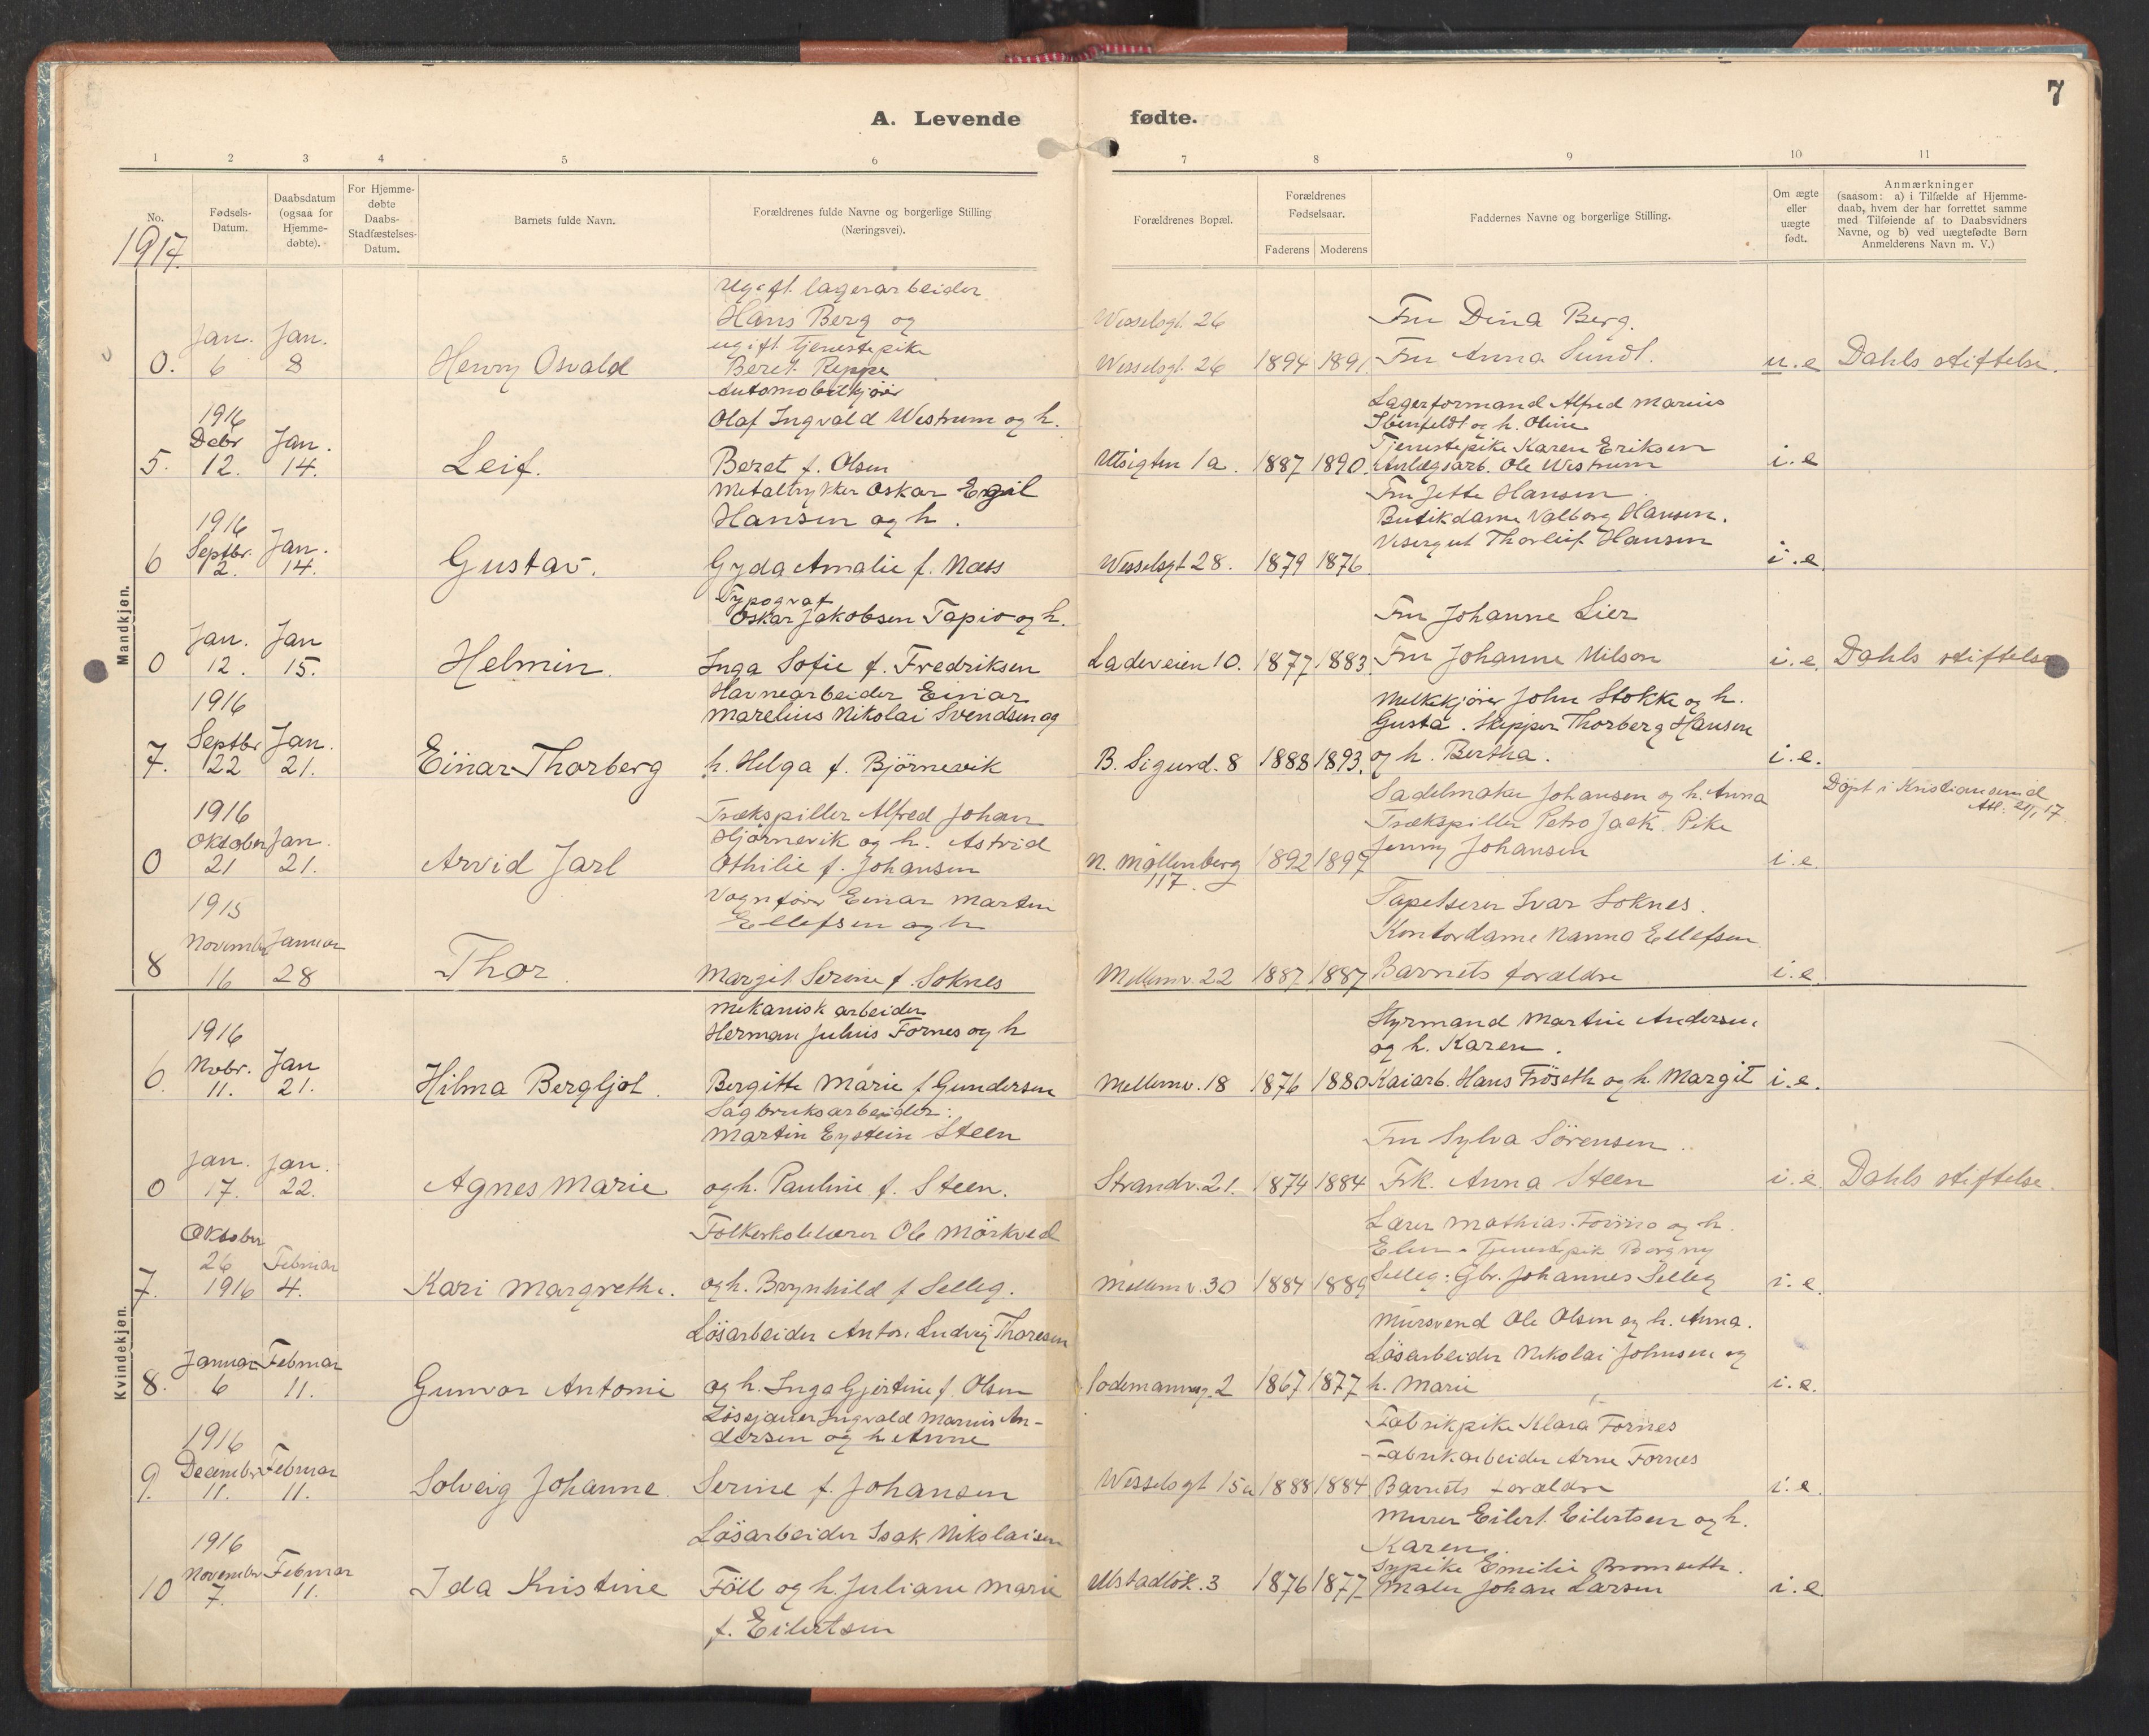 7
A. Levende fødte.
1 2 3 4 5 6 7 8 9 10 11
No.
Fødsels-
Datum.
Daabsdatum
(ogsaa for
Hjemme-
døbte).
For Hjemme-
døbte
Daabs-
Stadfæstelses-
Datum.
Barnets fulde Navn.
Forældrenes fulde Navne og borgerlige Stilling
(Næringsvei).
Forældrenes Bopæl.
Forældrenes
Fødselsaar.
Faderens Moderens
Faddernes Navne og borgerlige Stilling.
Om ægte
eller
uægte
født.
Anmærkninger
(saasom: a) i Tilfælde af Hjemme-
daab, hvem der har forrettet samme
med Tilføiende af to Daabsvidners
Navne, og b) ved uægtefødte Børn
Anmelderens Navn m. V.)
1917.
Mandkjøn.
Ugift lagerarbeider
Hans Berg og
ugift tjenestepike
Beret Reppe
0. Jan. 6 Jan. 8 Henry Osvald
Wesselsgt. 26
Wesselsgt. 26 1894 1891
Fru Dina Berg.
Fru Anna Sundt.
u.e Dahls stiftelse.
Automobilkjører
Olaf Ingvald Westrum og h.
Beret f. Olsen
5. 1916 Debr 12. Jan. 14. Leif.
Utsigten 1a. 1887 1890.
Lagerformand Alfred Marius
Ibenfeldt og h. Oline
Tjenestepike Karen Eriksen
Anlægsarb. Ole Westrum
i.e
Metaltrykker Oskar Egil
Hansen og h.
Gyda Amalie f. Næss
6 1916 Septbr. 12. Jan. 14. Gustav.
Wesselsgt 28. 1879 1876
Fru Jette Hansen.
Butikdame Valborg Hansen.
Visergut Thorleif Hansen
i.e
Typograf
Oskar Jakobsen Tapio og h.
Inga Sofie f. Fredriksen
0 Jan. 12. Jan 15. Helmin.
Ladeveien 10. 1877 1883
Fru Johanne Lier
Fru Johanne Nilson
i.e. Dahls stiftelse
Havnearbeider Einar
Marelius Nikolai Svendsen og
h. Helga f. Björnevik
7. 1916 Septbr 22 Jan. 21. Einar Thorberg
B. Sigurd. 8 1888 1893.
Melkekjører John Stokke og h.
Gusta. Skipper Thorberg Hansen
og h. Bertha.
i.e.
Trækspiller Alfred Johan
Hjörnevik og h. Astrid
Othilie f. Johansen
0 1916 Oktober 21 Jan. 21. Arvid Jarl
N. Möllenberg
117. 1892 1897
Sadelmaker Johansen og h. Anna
Trækspiller Petro Jack. Pike
Jenny Johansen
i.e.
Döpt i Kristiansund
Att. 21/1 17.
Vognfører Einar Martin
Ellefsen og h
Margit Serine f. Soknes
8 1915 November 16 Januar 28 Thor.
Mellemv. 22 1887 1887
Tapetserer Ivar Soknes.
Kontordame Nanna Ellefsen
Barnets forældre
i.e.
Kvindekjøn.
Mekanisk arbeider
Herman Julius Fornes og h
Bergitte Marie f Gundersen
6. 1916 Nobr. 11. Jan 21. Hilma Bergljot.
Mellemv. 18 1876 1880
Styrmand Martin Andersen
og h. Karen.
Kaiarb. Hans Fröseth og h. Margit
i.e.
Sagbruksarbeider
Martin Eystein Steen
og h. Pauline f. Steen.
0 Jan. 17. Jan. 22. Agnes Marie
Strandv. 21. 1874 1884
Fru Sylva Sörensen
Frk. Anna Steen
i.e. Dahls stiftelse.
Folkeskolelærer Ole Mörkved
og h. Brynhild f Selleg.
7. Oktober 26 1916 Februar 4. Kari Margrethe.
Mellemv. 30 1884 1889
Lærer Mathias og h.
Elen. Tjenestepik Borgny
Selleg: Gbr. Johannes Selleg
i.e.
Lösarbeider Anton Ludvig Thoresen
og h. Inga Gjertine f. Olsen
8. Januar 6 Februar 11. Gunvor Antonie
Lodemannsg. 2 1867 1877
Mursvend Ole Olsen og h. Anna.
Lösarbeider Nikolai Johnsen og
h. Marie
i.e.
Ingvald Marius An-
dersen og h Anne
Serine f. Johansen
9. 1916 December 11. Februar 11. Solveig Johanne
Wesselsgt 15a 1888 1884
Fabrikpike Klara Fornes
Fabrikarbeider Arne Fornes
Barnets forældre
i.e.
Lösarbeider Isak Nikolaisen
Föll og h. Juliane Marie
f. Eilertsen
10 1916 November 7. Februar 11. Ida Kristine
Ulstadlök. 3 1876 1877
Murer Eilert Eilertsen og h.
Karen.
Sypike Emilie Bromseth.
Maler Johan Larsen
i.e.